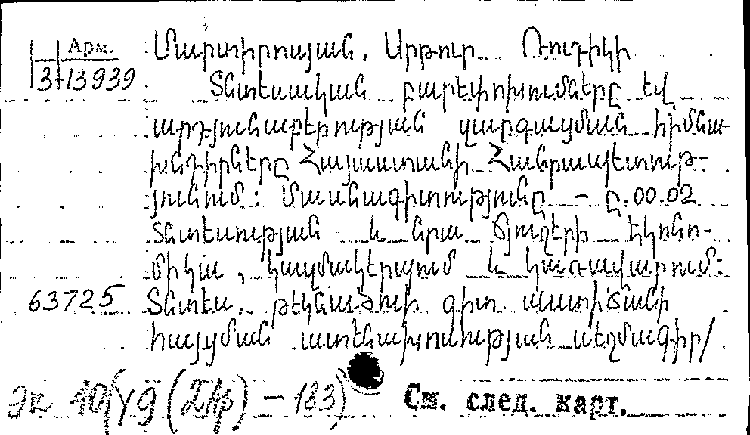 Арм.
3-13939
Մարտիրոսյան, Արթուր Ռուդիկի
Տնտեսական բարեփոխումները եվ
արդյունաբերության զարգացման հիմնա-
խնդիրները Հայաստանի Հանրապետութ-
յունում: Մասնագիտությունը - Ը.00.02
Տնտեսության և նրա ճյուղերի էկոնո-
միկա, կազմակերպում և կառավարում:
63725 Տնտես. թեկնածուի գիտ. աստիճանի
հայցման ատենախոսության սեղմագիր/
См. след. карт.